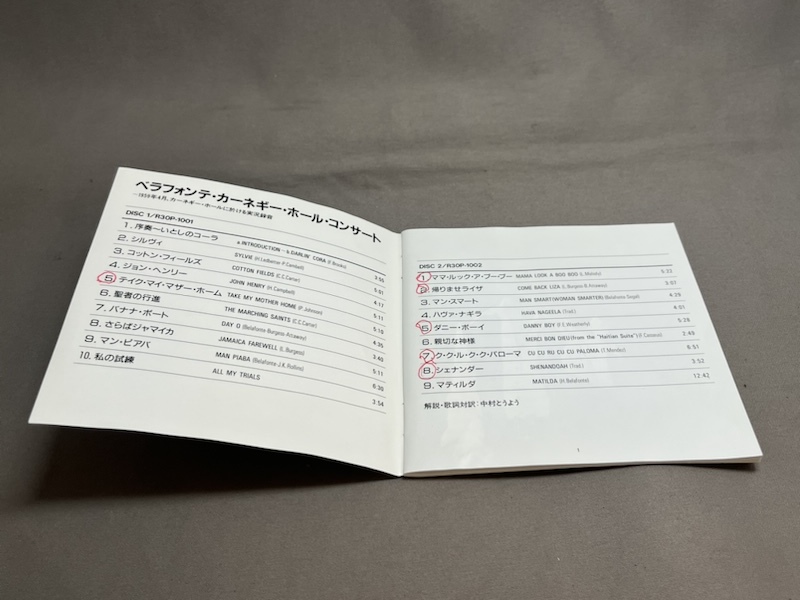 ベラフォンテ・カーネギー・ホール・コンサート
−1959年4月、カーネギー・ホールに於ける実況録音
DISC 1/R30P-1001
1. 序奏〜いとしのコーラ a. INTRODUCTION—b. DARLIN' CORA (F. Brooks) 3:55
2. シルヴィ SYLVIE (H. Ledbetter-P. Campbell) 5:01
3. コットン・フィールズ COTTON FIELDS (C.C. Carter) 4:17
4. ジョン・ヘンリー JOHN HENRY (H. Campbell) 5:11
5. テイク・マイ・マザー・ホーム TAKE MY MOTHER HOME (P. Johnson) 5:10
6. 聖者の行進 THE MARCHING SAINTS (C.C. Carter) 4:35
7. バナナ・ボート DAY O (Belafonte-Burgess-Attaway) 3:40
8. さらばジャマイカ JAMAICA FAREWELL (L. Burgess) 5:11
9. マン・ピアバ MAN PIABA (Belafonte-J.K. Rollins) 6:30
10. 私の試練 ALL MY TRIALS 3:54
DISC 2/R30P-1002
1. ママ・ルック・ア・ブーブー MAMA LOOK A BOO BOO (L. Melody) 5:23
2. 帰りませライザ COME BACK LIZA (L. Burgess-B. Attaway) 3:07
3. マン・スマート MAN SMART(WOMAN SMARTER) (Belafonte-Segal) 4:29
4. ハヴァ・ナギラ HAVA NAGEELA (Trad.) 4:01
5. ダニー・ボーイ DANNY BOY (F.E. Weatherly) 5:28
6. 親切な神様 MERCI BON DIEU (from the "Haitian Suite") (F. Casseus) 2:49
7. ク・ク・ル・ク・ク・パローマ CU CU RU CU CU PALOMA (T. Mendez) 6:51
8. シェナンダー SHENANDOAH (Trad.) 3:52
9. マティルダ MATILDA (H. Belafonte) 12:42
解説・歌詞対訳：中村とうよう
1